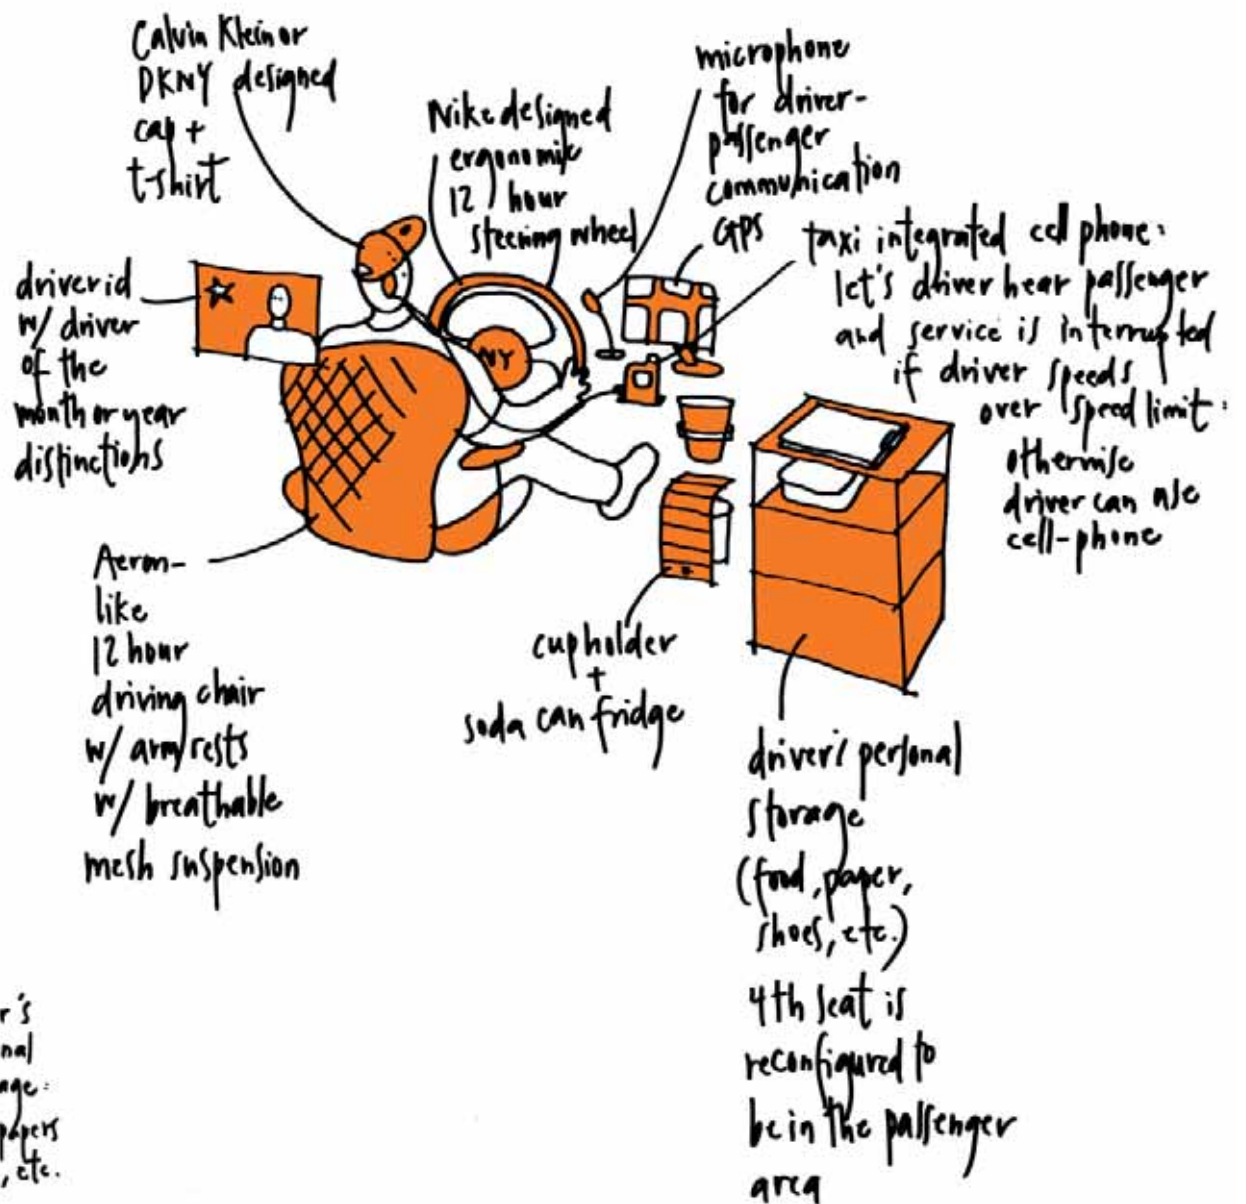 Calvin Klein or
DKNY designed
cap +
t-shirt
Nike designed
ergonomic
12 hour
steering wheel
microphone
for driver-
passenger
communication
GPS
taxi integrated cell phone:
let's driver hear passenger
and service is interrupted
if driver speeds
over speed limit:
otherwise
driver can use
cell-phone
driver id
w/ driver
of the
month or year
distinctions
NY
Aeron-
like
12 hour
driving chair
w/ arm rests
w/ breathable
mesh suspension
cupholder
+
soda can fridge
driver's personal
storage
(food, paper,
shoes, etc.)
4th seat is
reconfigured to
be in the passenger
area
r's
nal
age:
papers
, etc.